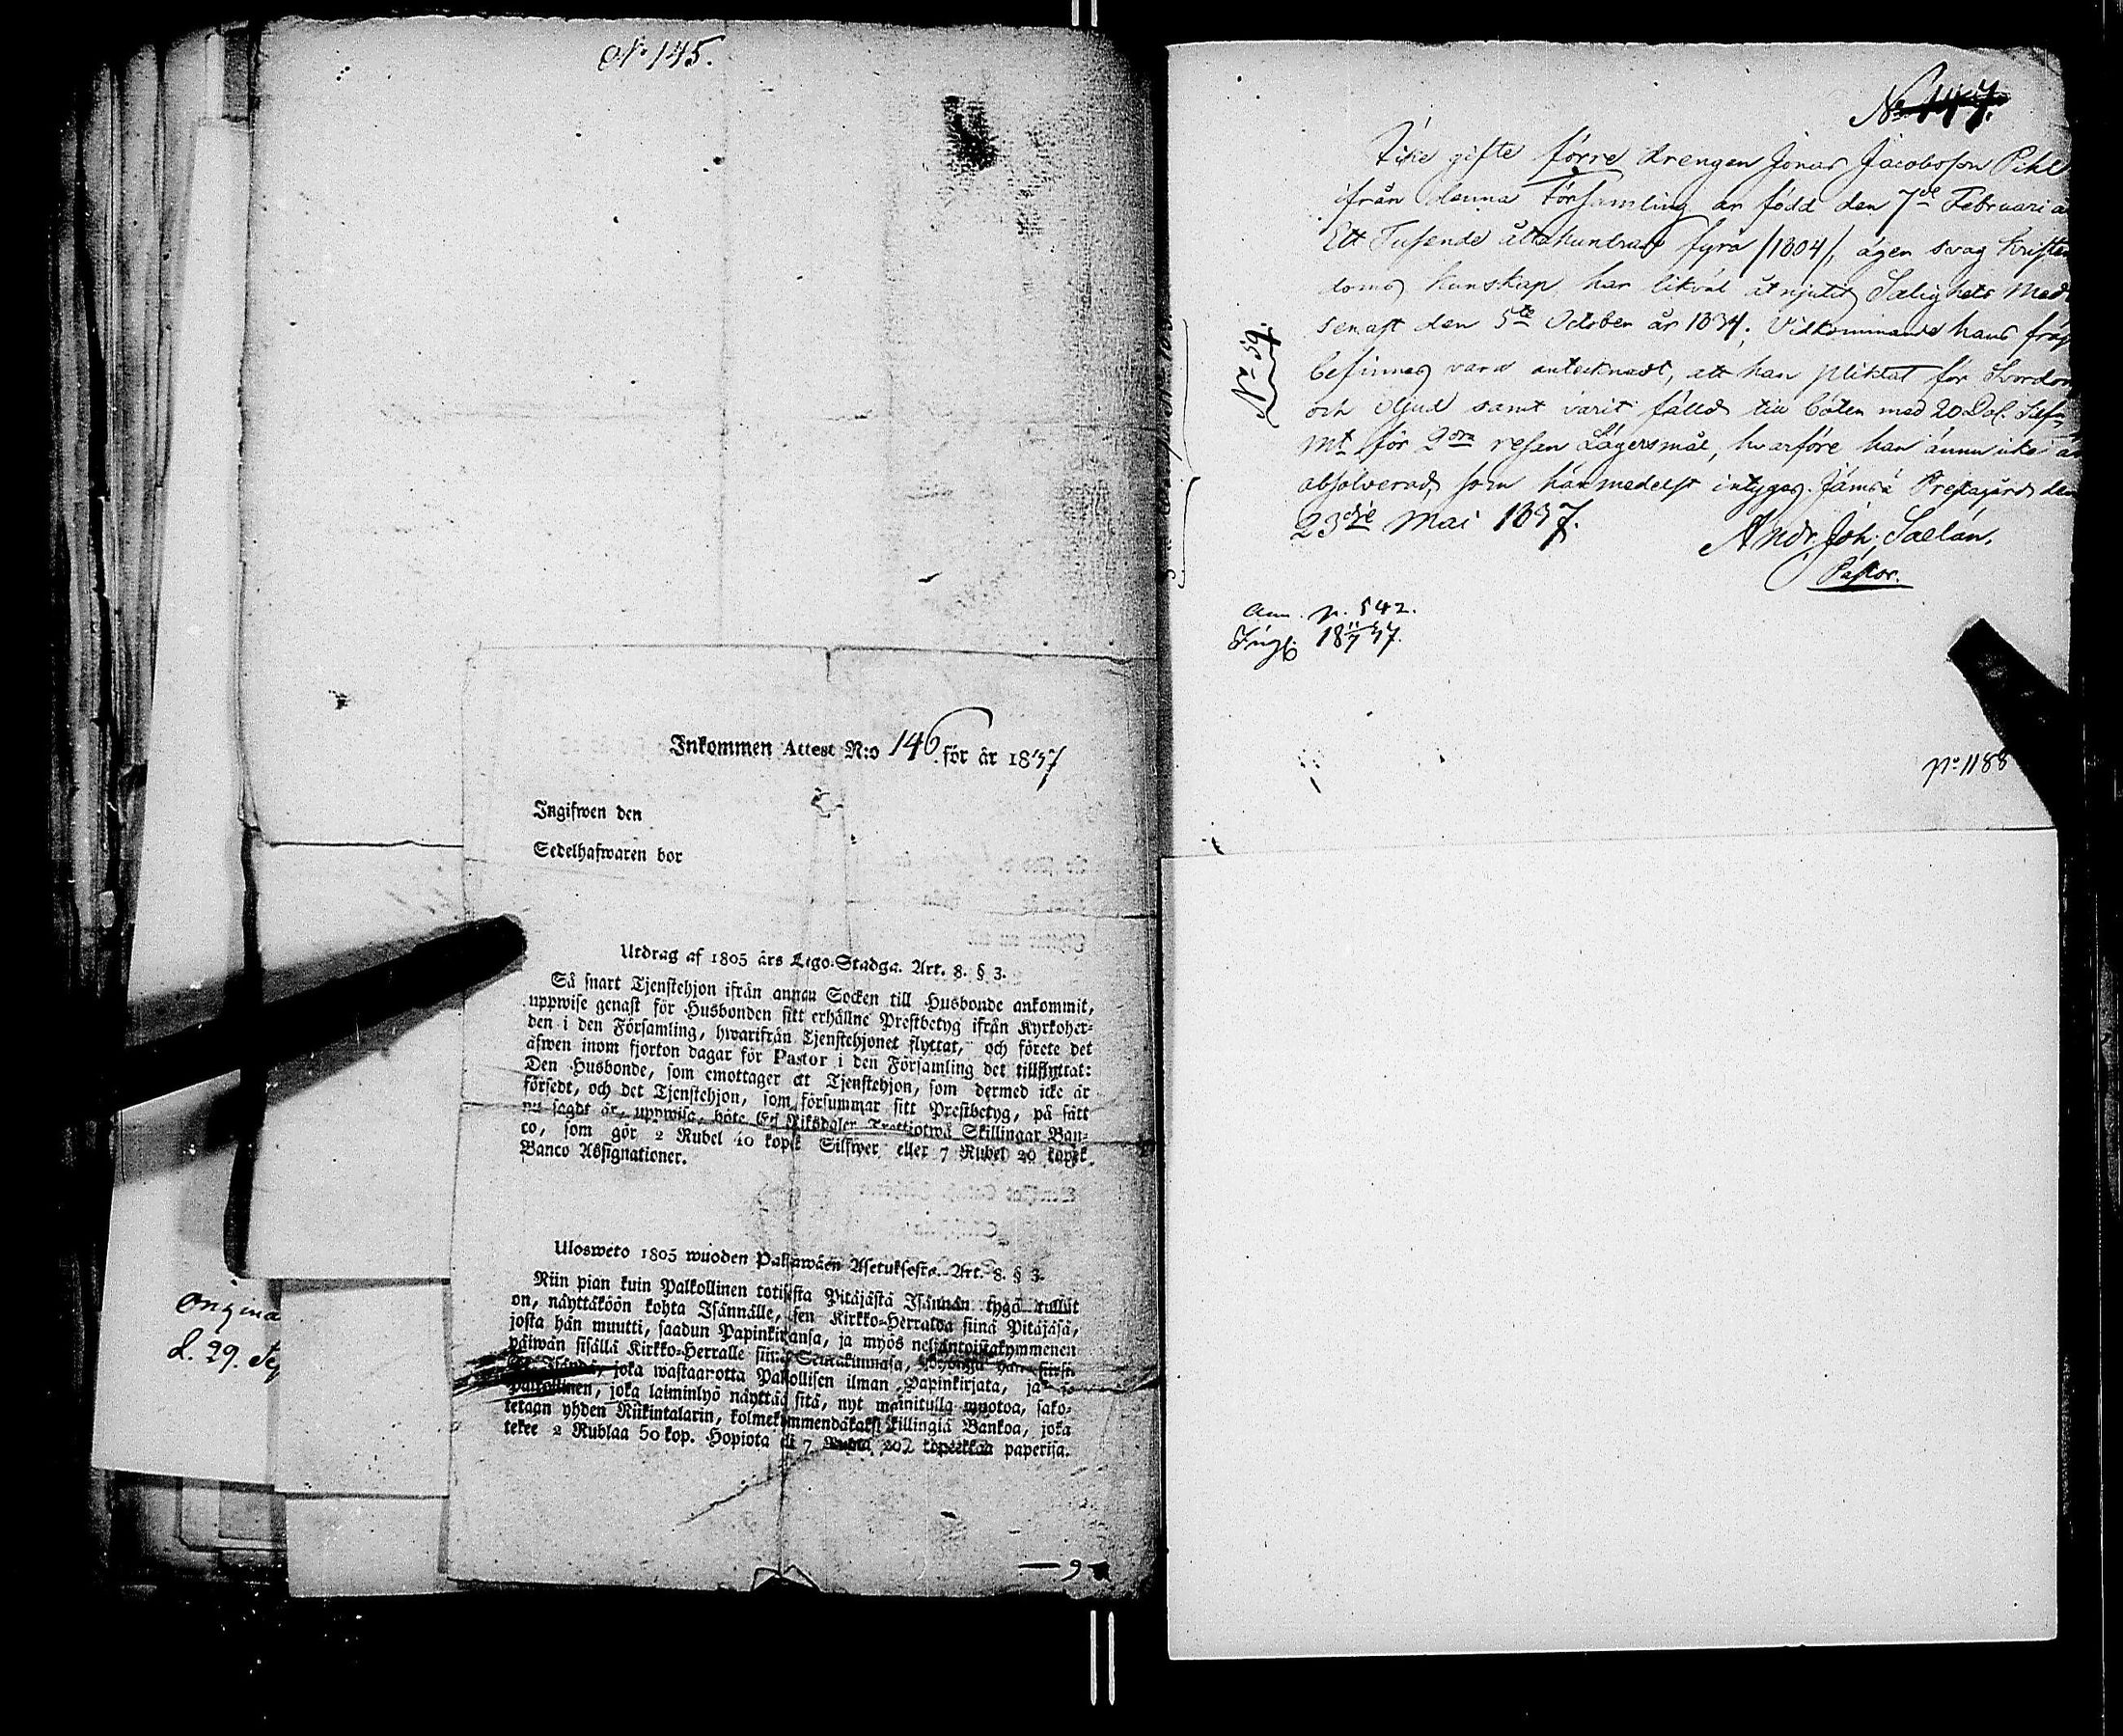 No 145.
Inkommen Attest N:o 146 för år 1837
Ingifwen den
Sedelhafwaren bor
Utdrag af 1805 års Lego-Stadga. Art. 8. § 3.
Så snart Tjenstehjon ifrån annan Socken till Husbonde ankommit,
uppwise genast för Husbonden sitt erhållne Prestbetyg ifrån Kyrkoher-
den i den Församling, hwarifrån Tjenstehjonet flyttat, och förete det
äfwen inom fjorton dagar för Pastor i den Församling det tillflyttat:
Den Husbonde, som emottager ett Tjenstehjon, som dermed icke är
försedt, och det Tjenstehjon, som försummar sitt Prestbetyg, på sätt
nu sagdt är, uppwisa, böte En Riksdaler Trettiotwå Skillingar Ban-
co, som gör 2 Rubel 40 kopek Silfwer eller 7 Rubel 20 kopek
Banco Assignationer.
Ulosweto 1805 wuoden Palkawäen Asetuksesta. Art. 8. § 3.
Niin pian kuin Palkollinen toisesta Pitäjästä Isännän tygö tullut
on, näyttäköön kohta Isännälle, sen Kirkko-Herralda siinä Pitäjäsä,
josta hän muutti, saadun Papinkirjansa, ja myös neljäntoistakymmenen
päiwän sisällä Kirkko-Herralle siinä Seurakunnasa,
joka wastaanotta Palkollisen ilman Papinkirjata, ja se
Palkollinen, joka laiminlyö näyttää sitä, nyt mainitulla muotoa, sako-
tetaan yhden Riikintalarin, kolmekymmendäkaksi killingiä Bankoa, joka
tekee 2 Rublaa 50 kop. Hopiota eli 7 Rubla 20 kopeekkaa paperisa.
9
Origina
d. 29. Sep
No 147.
Icke gifte förre drengen Jonas Jacobsson Pihl
ifrån denna Församling är född den 7de Februari
Ett Tusende åttahundrade fyra /1804/, äger svag kristen
doms kunskap, har likväl åtnjutit Salighets Med
senast den 5te October år 1834. Vidkommande hans frägd
befinnes vara antecknadt, att han pliktat för
och oljud samt varit fälld till böter med 20 Dal. Silf
Mt för 2dra resan Lägersmål, hvarföre han ännu icke är
absolverad, som härmedelst intygas. Jämsä Prestagård den
23dje Mai 1837.
Andr. Joh. Saelan.
Pastor.
No 59.
Ann. p. 542.
Ingb 18 11/7 37.
No 1188